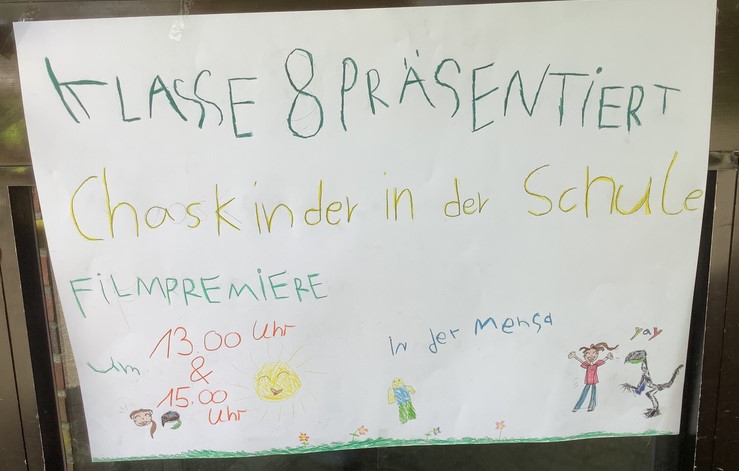 KLASSE 8 PRÄSENTIERT
Chaoskinder in der Schule
FILMPREMIERE
um 13.00 Uhr
&
15.00 Uhr
in der Mensa
yay